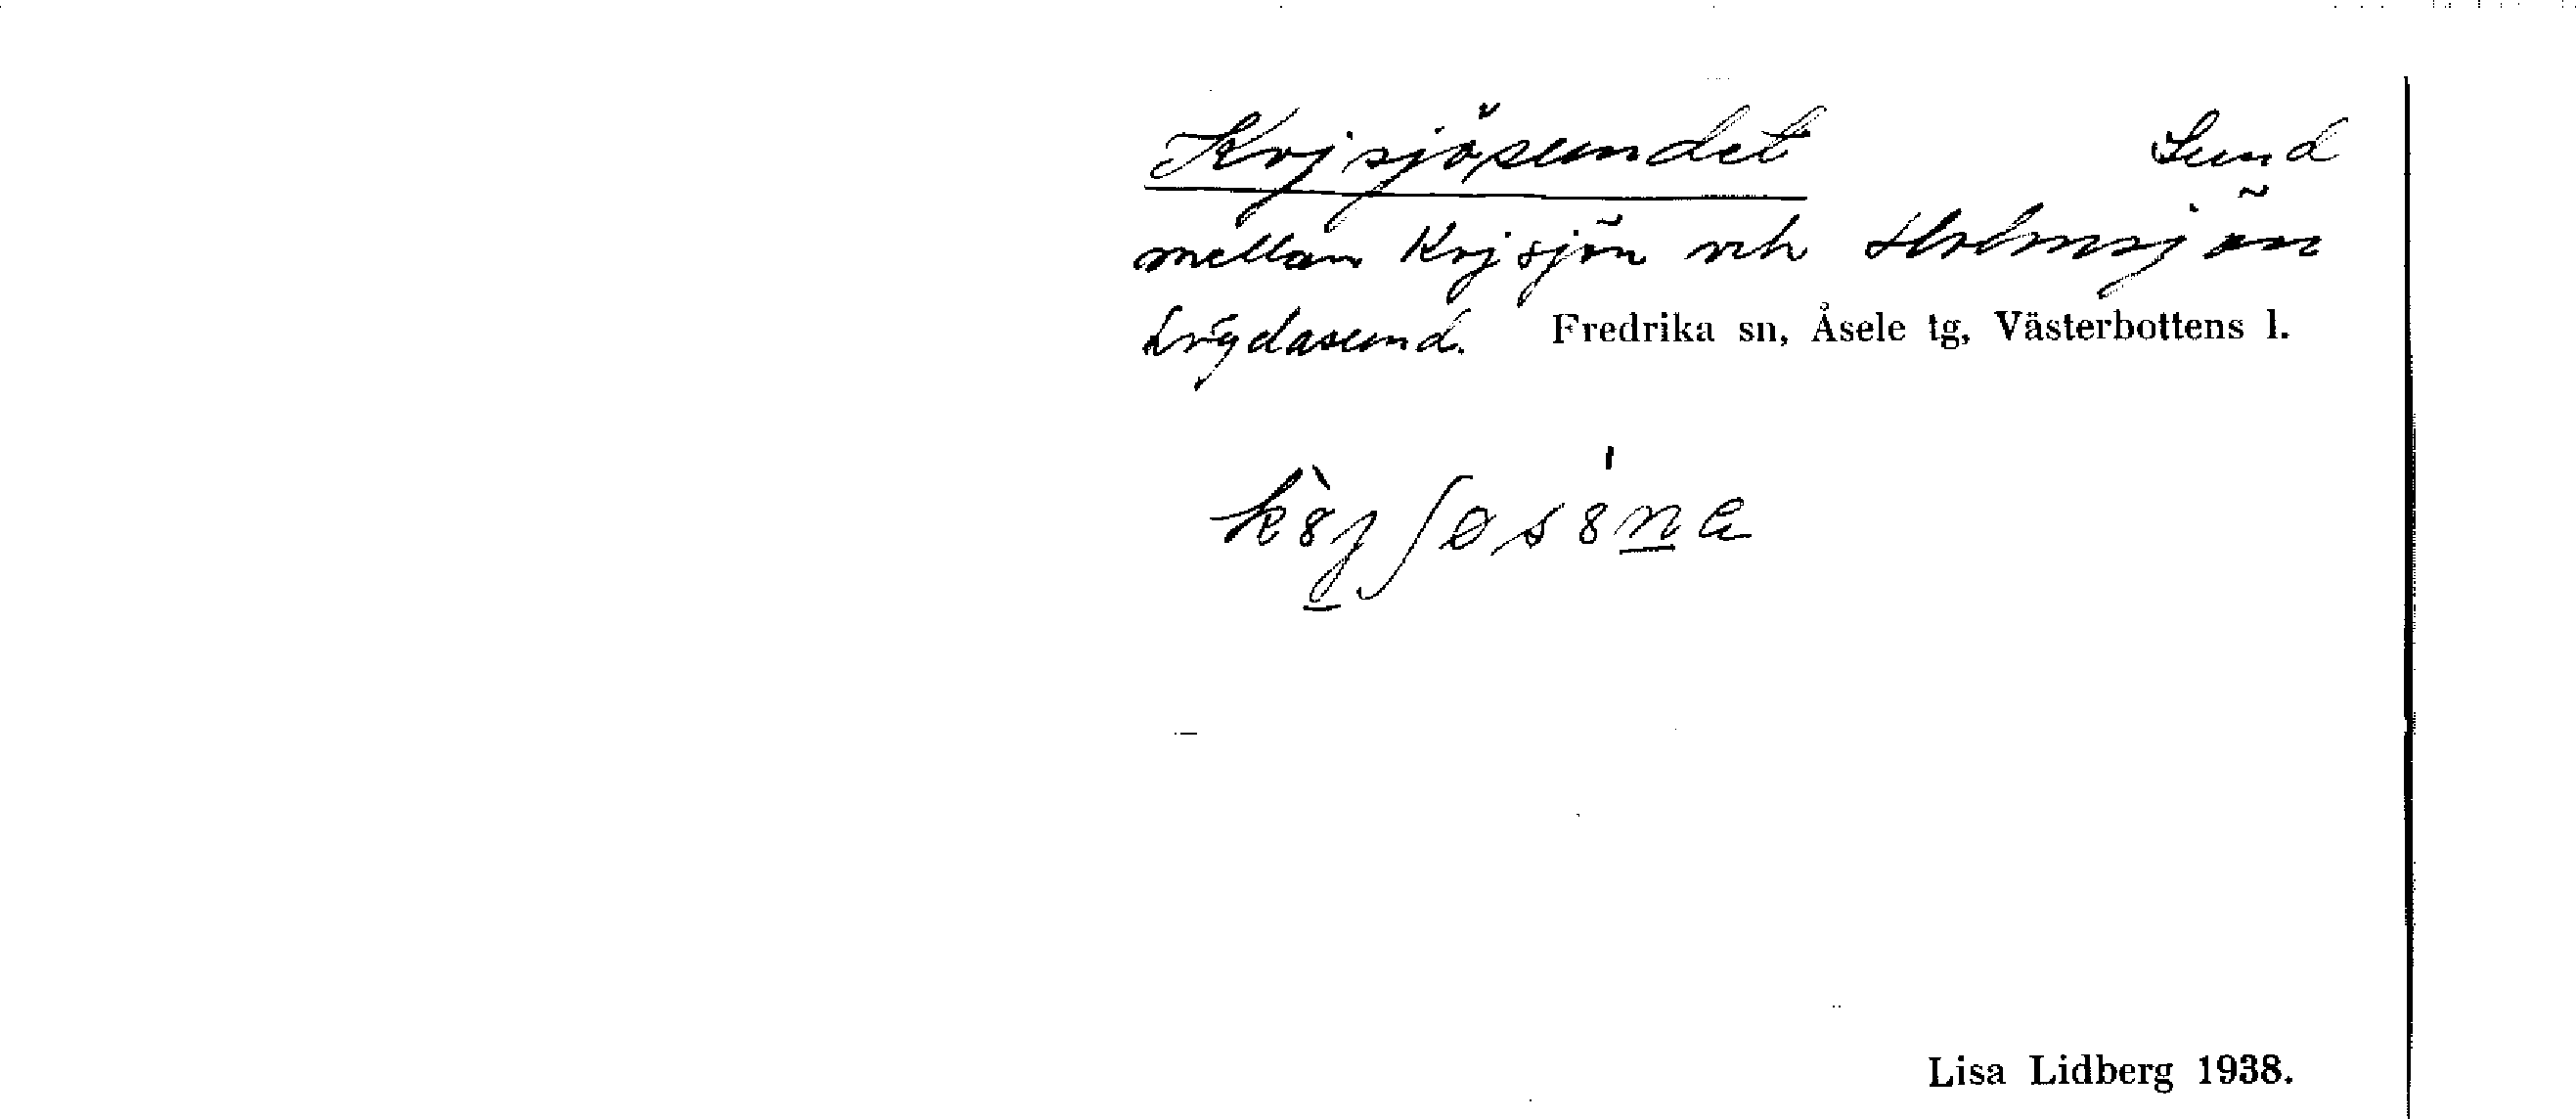 Kojsjösundet Sund
mellan Kojsjön och Holmsjön
Lögdasund. Fredrika sn, Åsele tg, Västerbottens l.
Lisa Lidberg 1938.